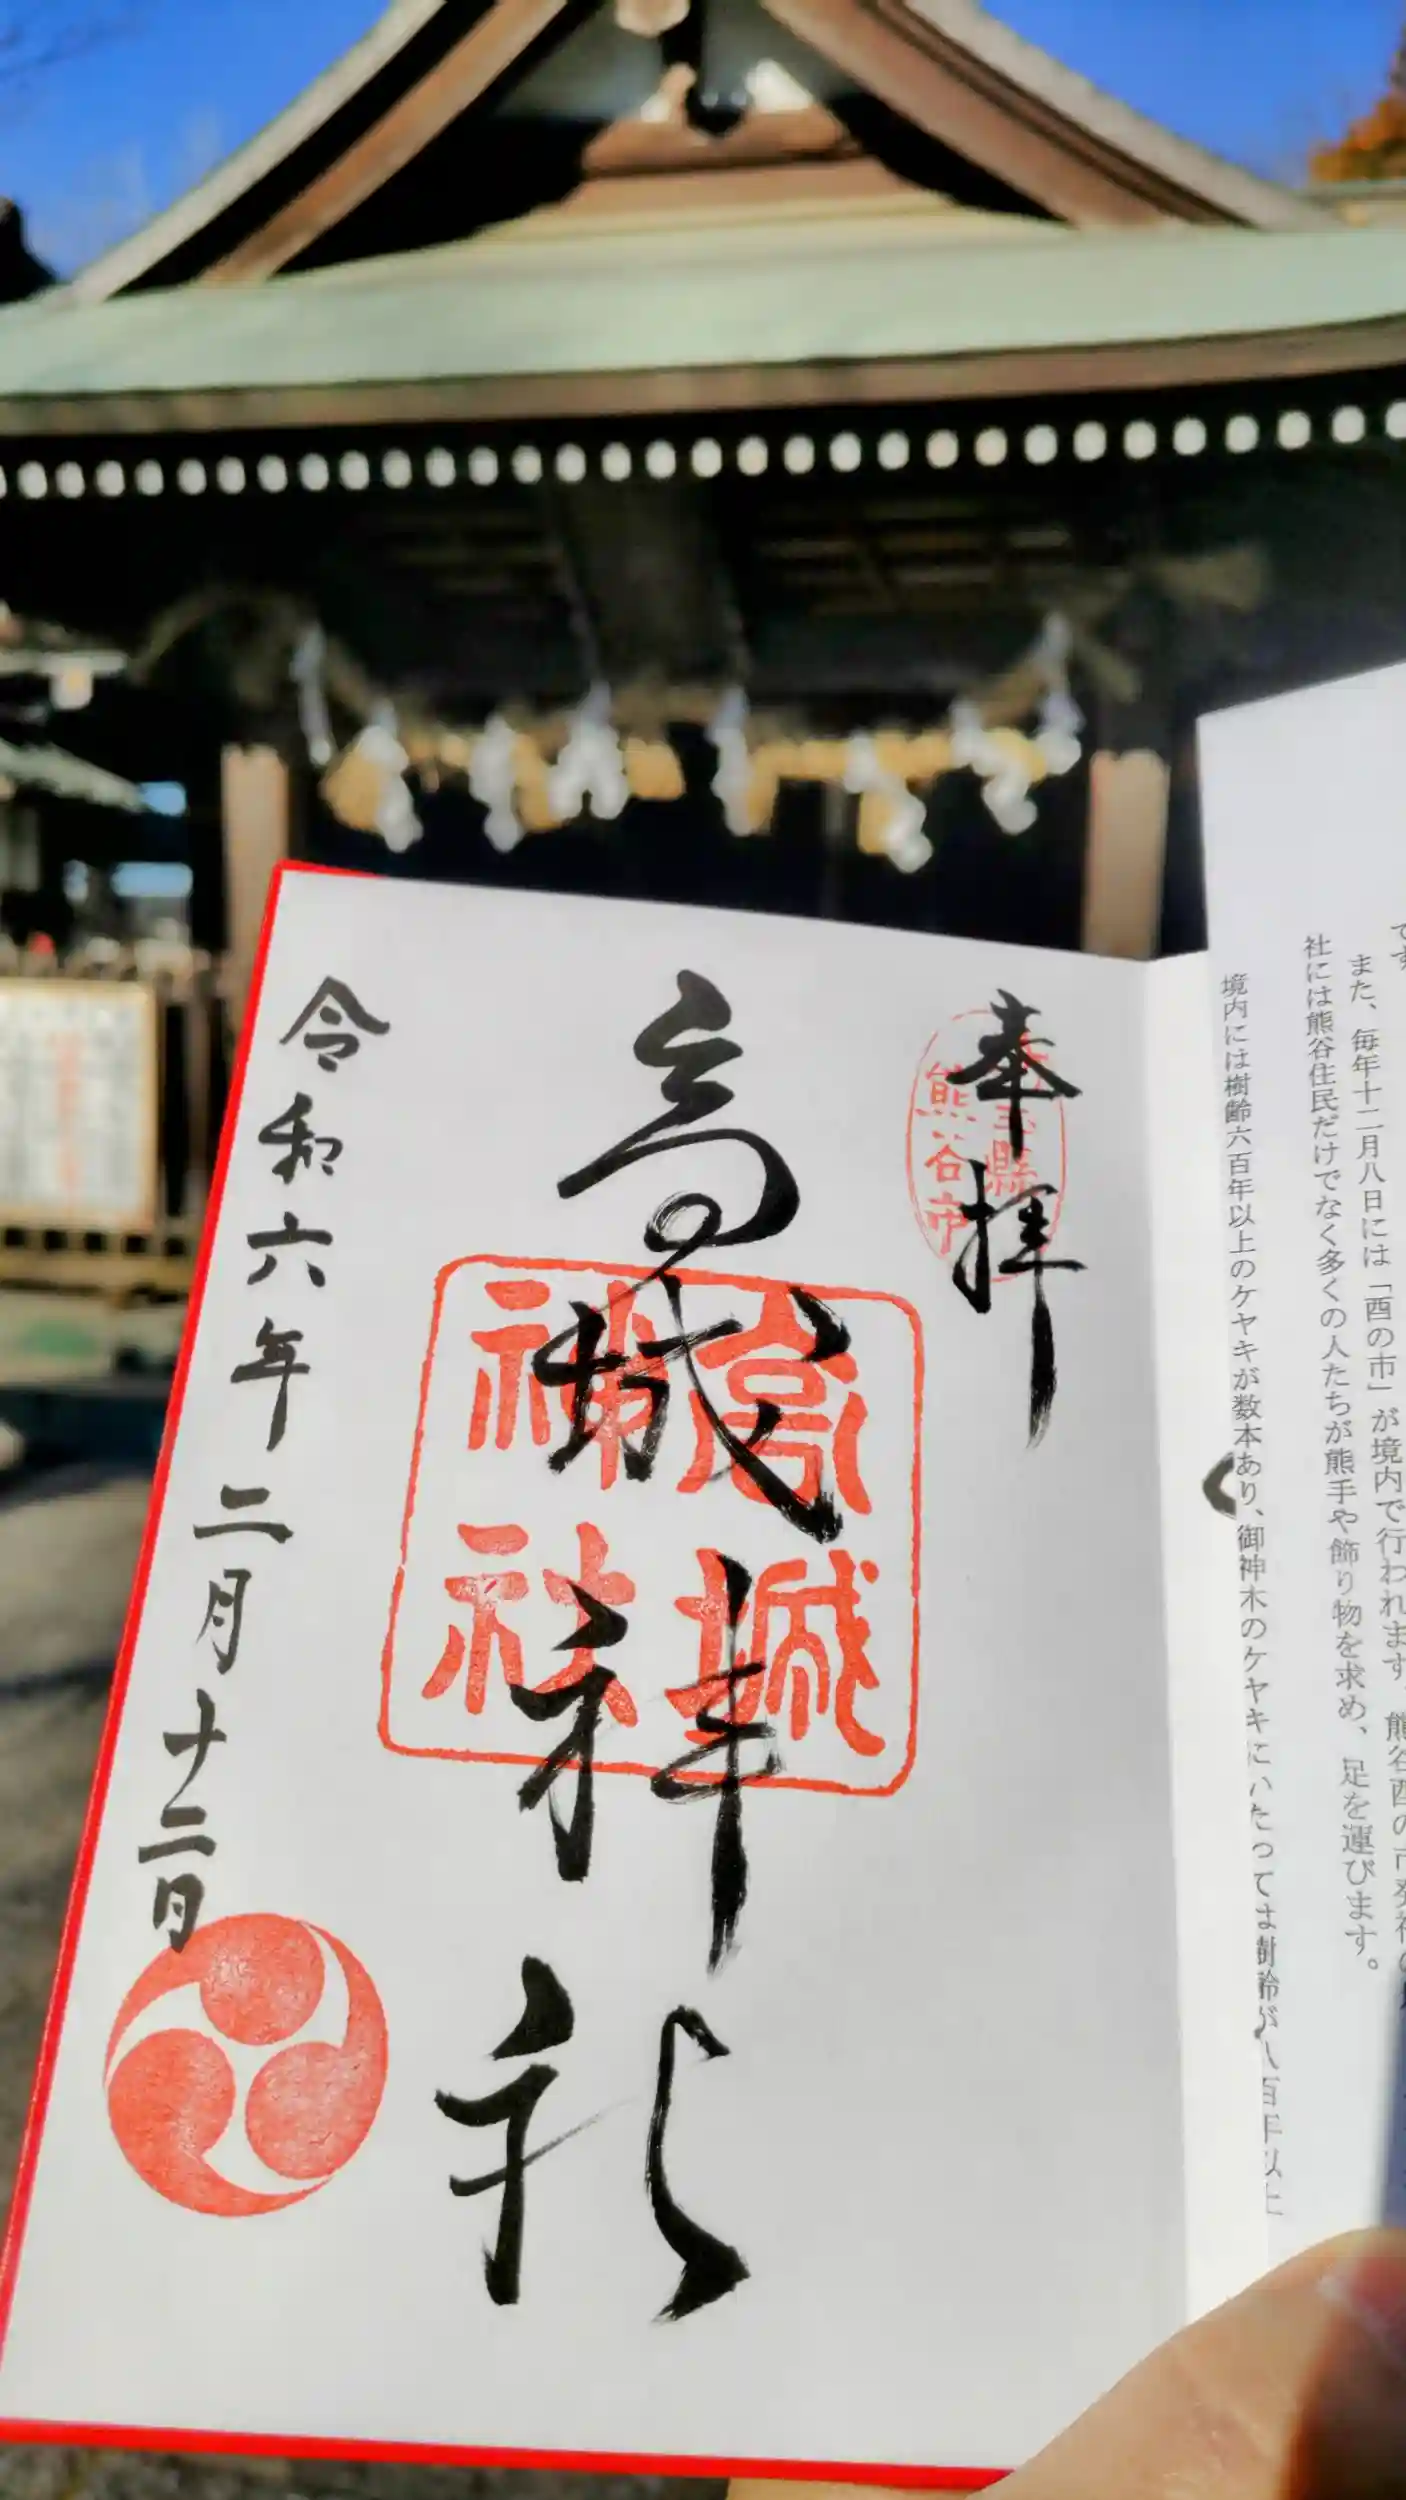 また、毎年十二月八日には「酉の市」が境内で行われます。熊谷酉の市発祥の
社には熊谷住民だけでなく多くの人たちが熊手や飾り物を求め、足を運びます。
境内には樹齢六百年以上のケヤキが数本あり、御神木のケヤキにいたっては樹齢が八百年以上
奉拝
埼玉縣
熊谷市
高城神社
高城
神社
令和六年二月十二日